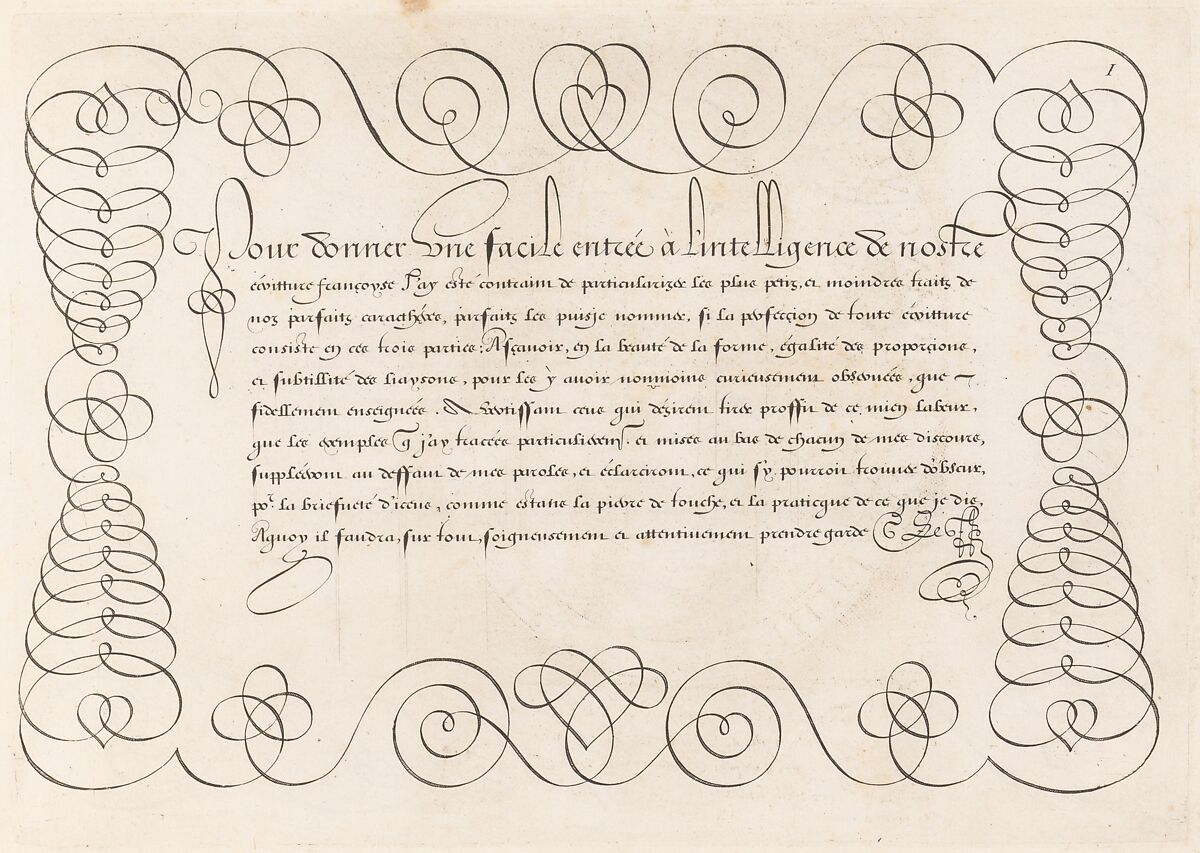 1
Pour donner vne facile entrée à l'intelligence de nostre
écritture françoyse J'ay esté contraint de particularizer les plus petiz, et moindres traits de
noz parfaits caracthéres, parfaits les puisje nommer, si la perfecçion de toute écritture
consiste en ces trois parties: Asçavoir, en la beauté de la forme, égalité des proporçions,
et subtillité des liaysons, pour les y auoir nonmoins curieusement obseruées, que
fidellement enseignées. Avertissant ceus qui désirent tirer proffit de ce mien labeur,
que les exemples q j'ay tracées particulierem.t et mises au bas de chacun de mes discours,
suppléeront au deffaut de mes paroles, et éclarciront, ce qui s'y pourroit trouuer d'obscur,
po.r la briefueté d'iceus, comme estans la pierre de touche, et la praticque de ce que je dis,
Aquoy il faudra, sur tout, soigneusement et attentivement prendre garde